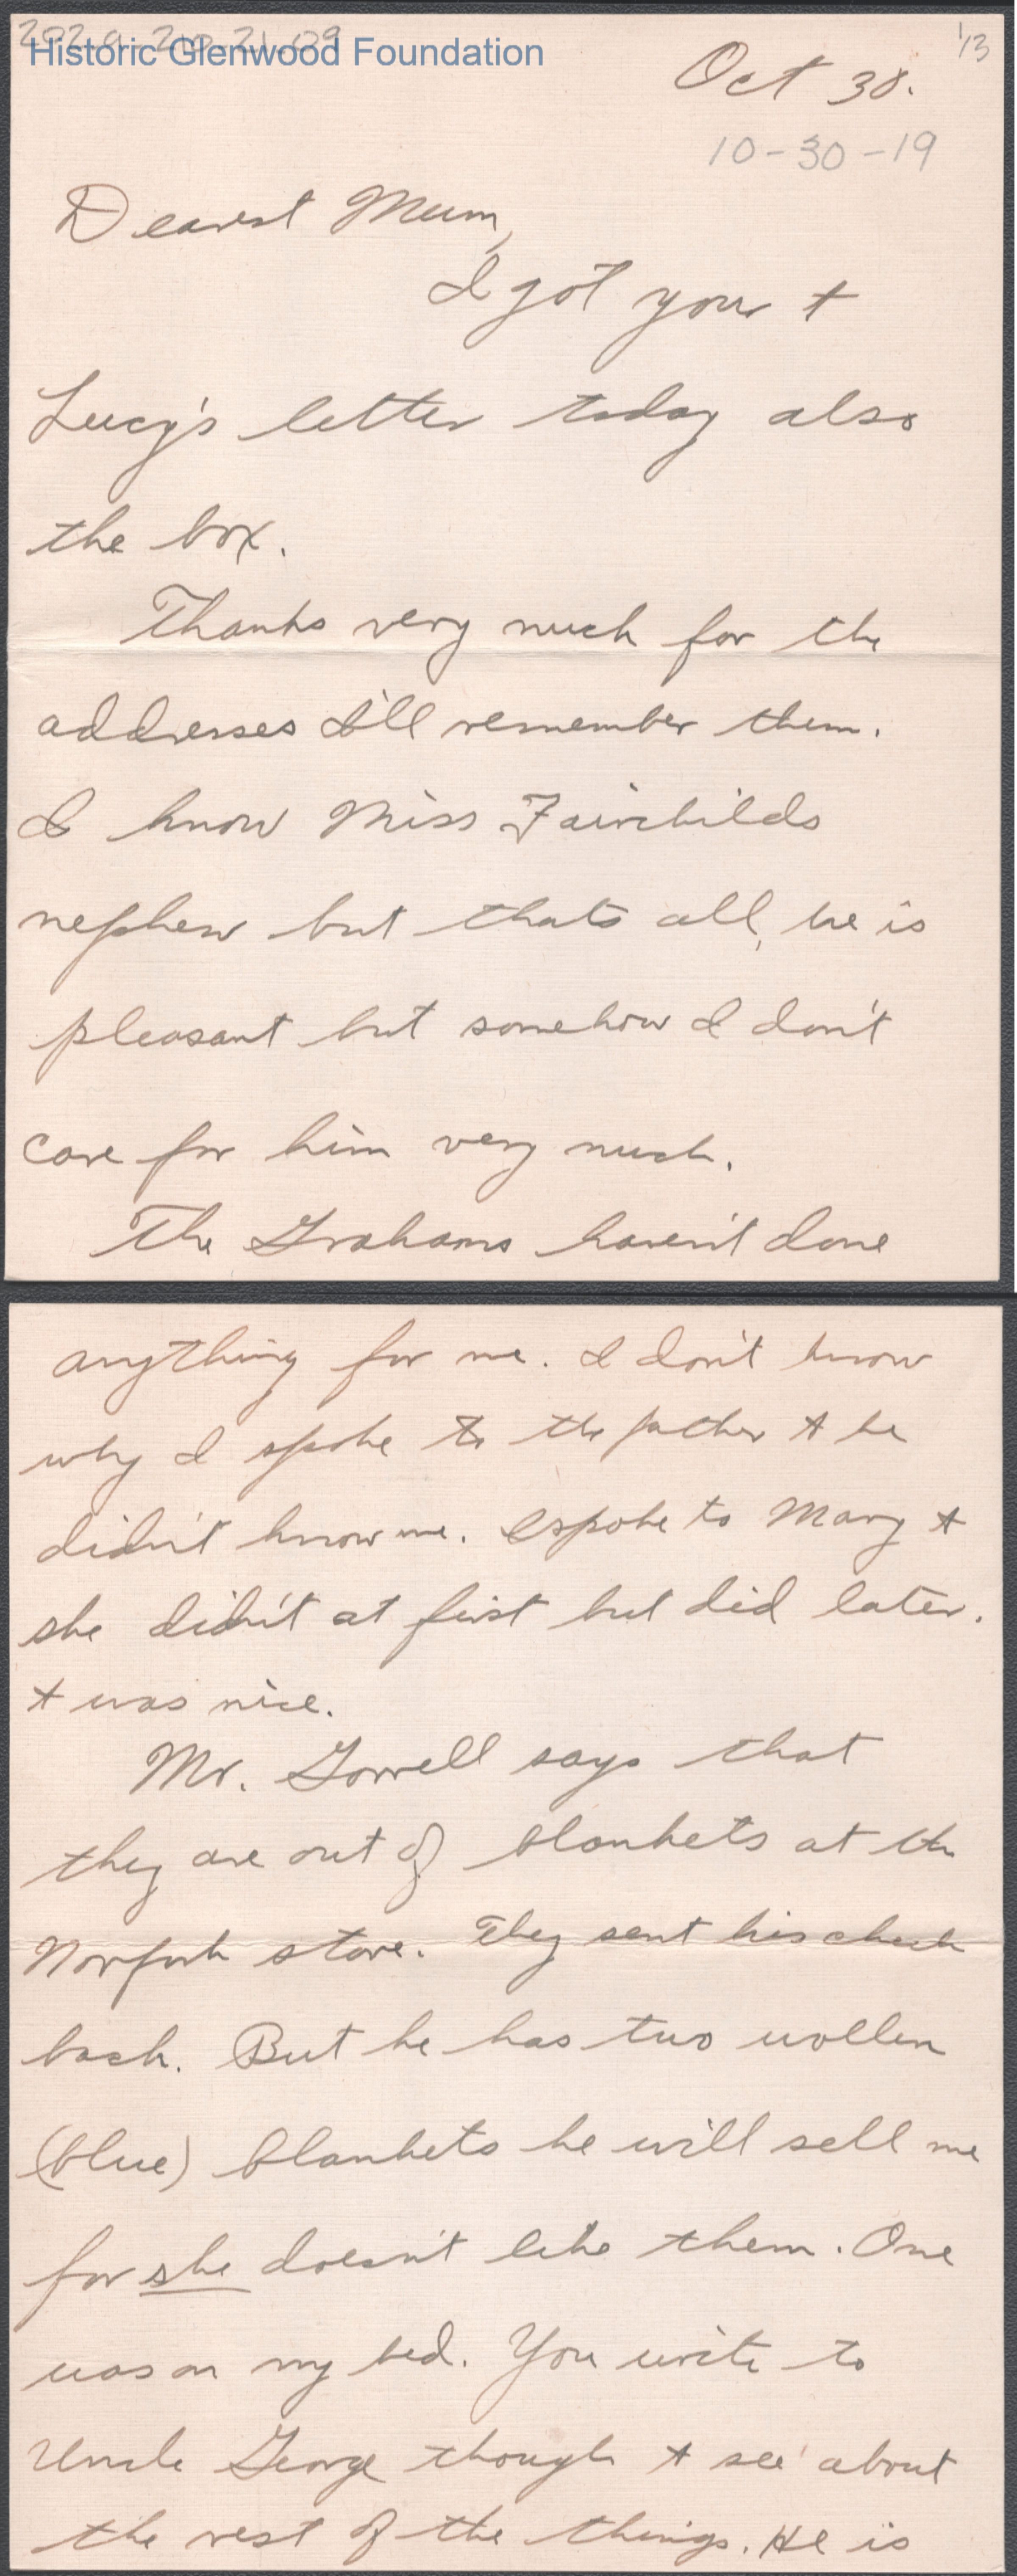 Historic Glenwood Foundation
1/3
Oct 30.
10-30-19
Dearest Mum,
I got your +
Lucy's letter today also
the box.
Thanks very much for the
addresses I'll remember them.
I know Miss Fairchilds
nephew but thats all, he is
pleasant but somehow I don't
care for him very much.
The Grahams haven't done
anything for me. I don't know
why I spoke to the father + he
didn't know me. I spoke to Mary +
she didn't at first but did later.
+ was nice.
Mr. Gorrell says that
they are out of blankets at the
Norfork store. They sent his check
back. But he has two wollen
(blue) blankets he will sell me
for she doesn't like them. One
was on my bed. You write to
Uncle George though + see about
the rest of the things. He is